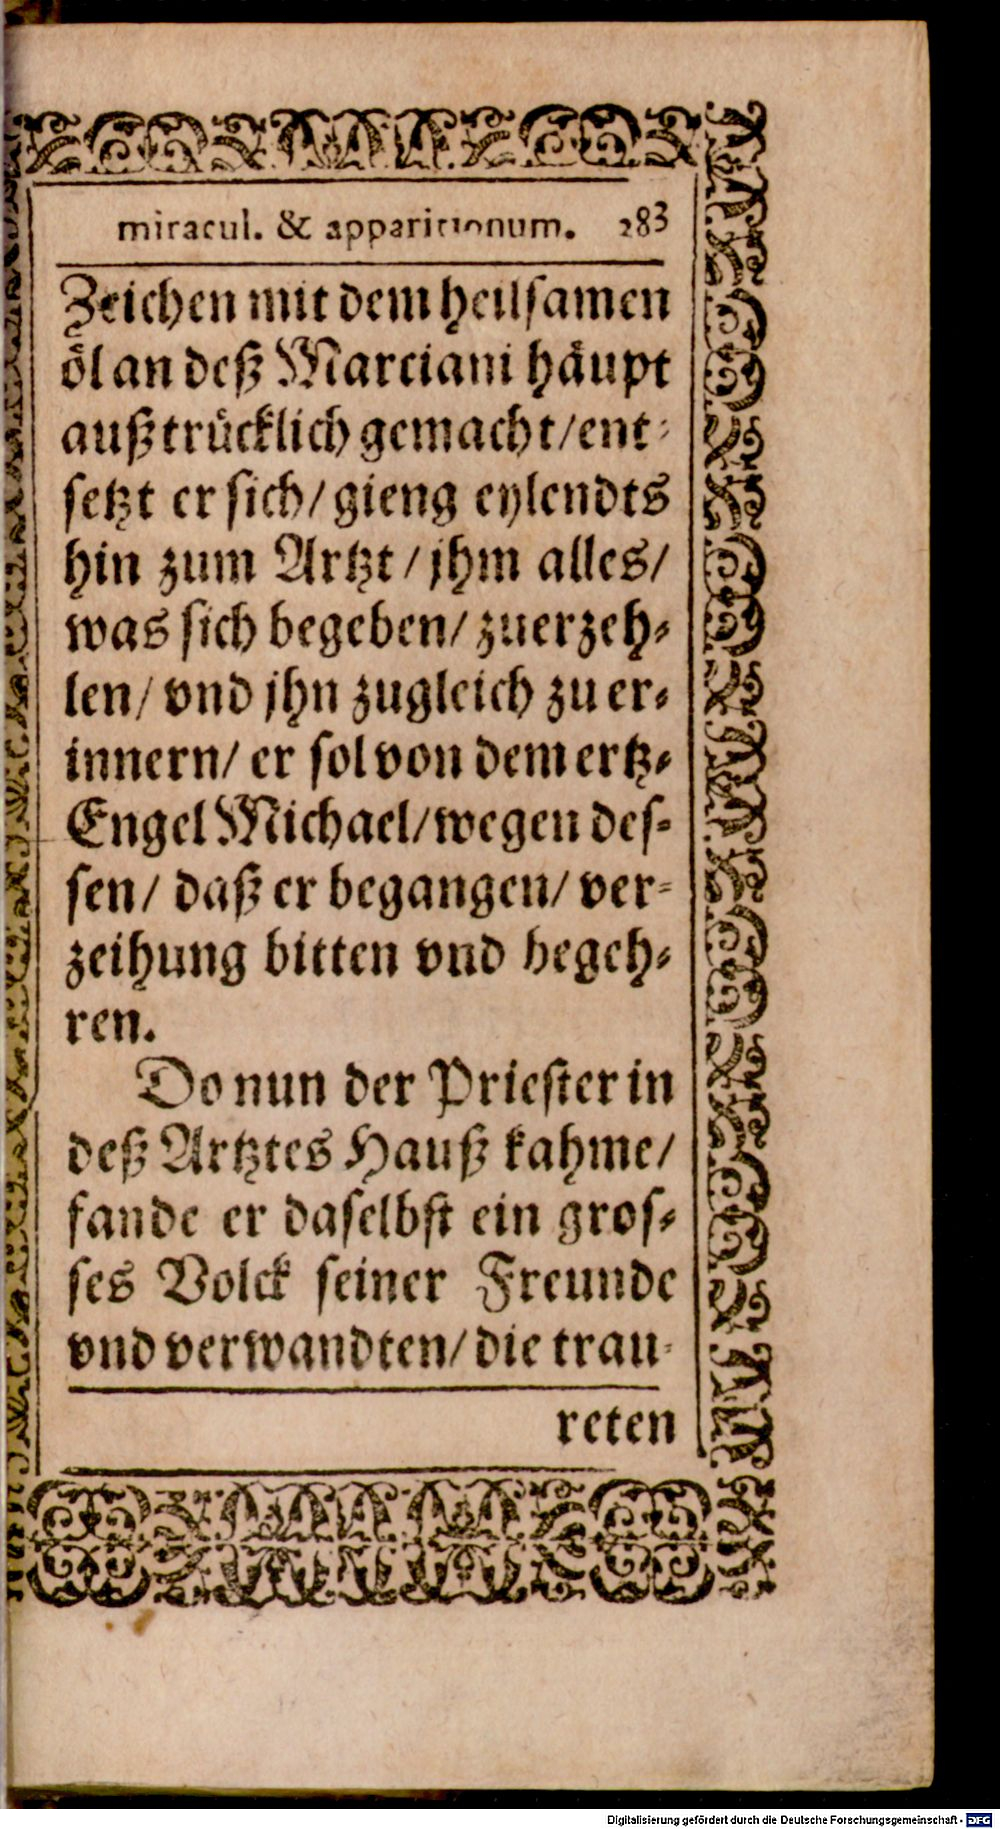 miracul. & apparitionum. 283
Zeichen mit dem heilsamen
oͤl an deß Marciani haͤupt
außtruͤcklich gemacht/ent-
setzt er sich/ gieng eylendts
hin zum Artzt / jhm alles/
was sich begeben/ zuerzeh-
len/ vnd jhn zugleich zu er-
innern/ er sol von dem ertz-
Engel Michael/wegen des-
sen/ daß er begangen/ ver-
zeihung bitten vnd begeh-
ren.
Do nun der Priester in
deß Artztes Hauß kahme/
fande er daselbst ein gros-
ses Volck seiner Freunde
vnd verwandten/ die trau-
reten
Digitalisierung gefördert durch die Deutsche Forschungsgemeinschaft - DFG